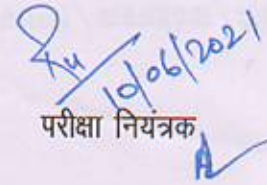 10/06/2021
परीक्षा नियंत्रक